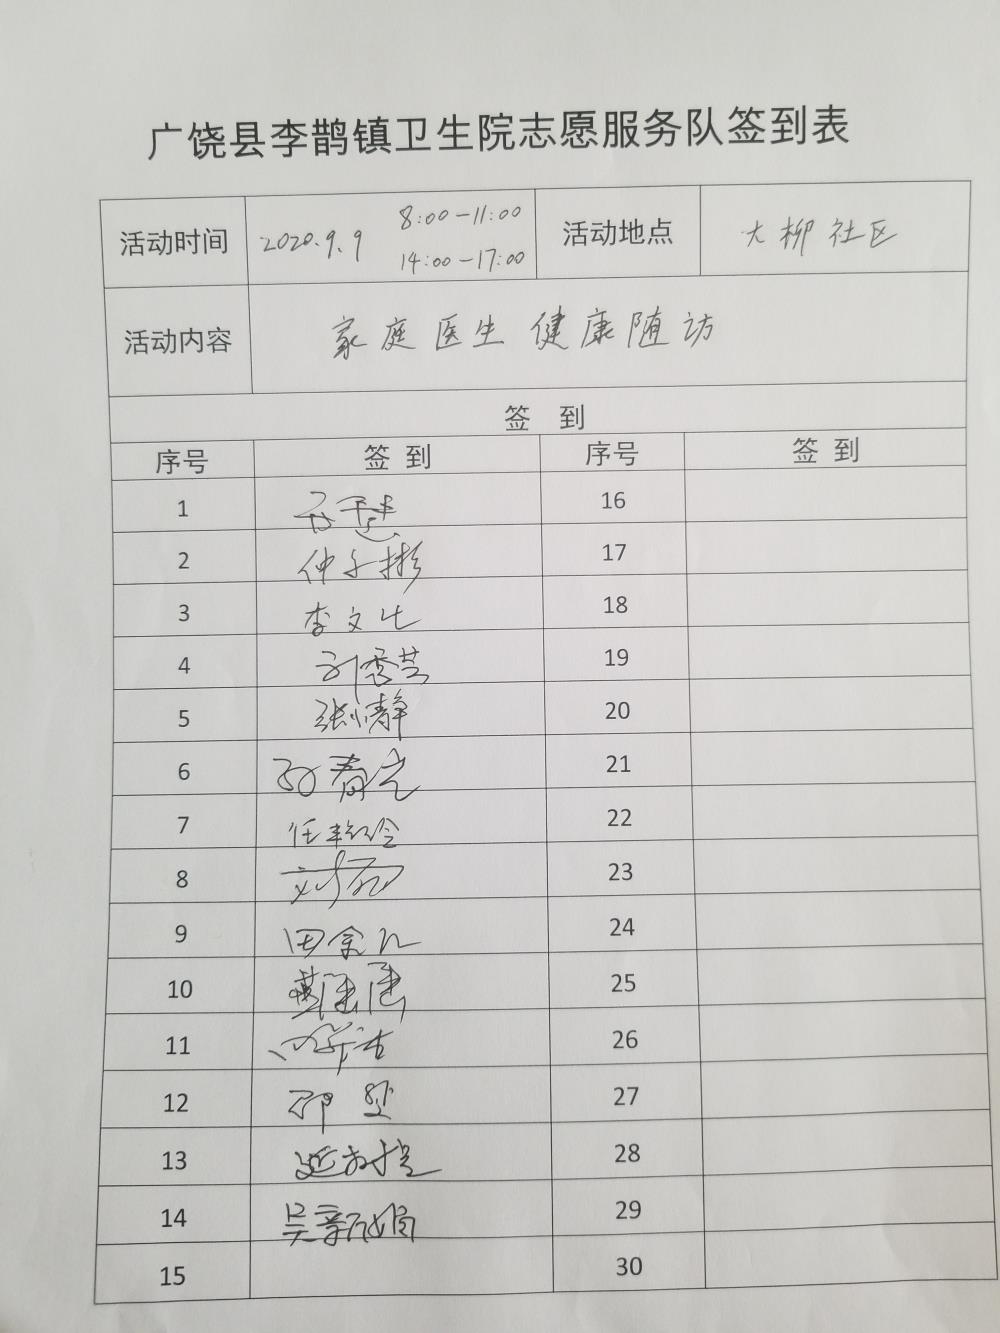 广饶县李鹊镇卫生院志愿服务队签到表
活动时间 2020.9.9 8:00-11:00 14:00-17:00 活动地点 大柳社区
活动内容 家庭医生健康随访
签 到
序号 签 到 序号 签 到
1 16
2 仲子彬 17
3 李文 18
4 刘秀芸 19
5 张静 20
6 孙春 21
7 任 22
8 刘 23
9 田 24
10 25
11 26
12 邵 27
13 28
14 吴 29
15 30